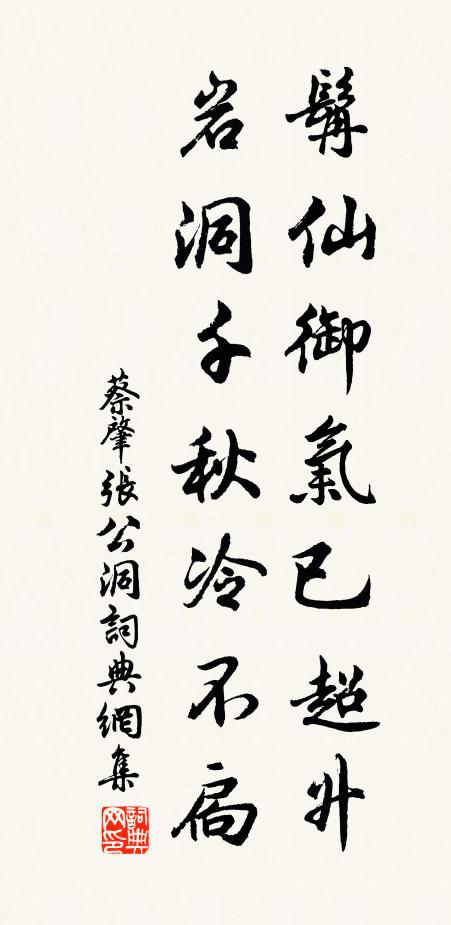 髯仙御氣已超升
岩洞千秋冷不扃
蔡肇張公洞詞典網集
詞典
网印